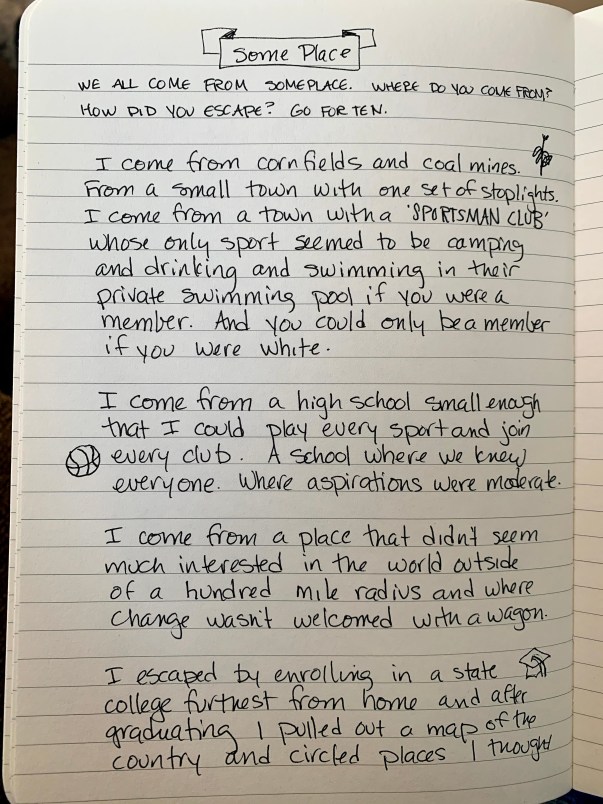 Some Place
WE ALL COME FROM SOMEPLACE. WHERE DO YOU COME FROM?
HOW DID YOU ESCAPE? GO FOR TEN.
I come from cornfields and coal mines.
From a small town with one set of stoplights.
I come from a town with a 'SPORTSMAN CLUB'
whose only sport seemed to be camping
and drinking and swimming in their
private swimming pool if you were a
member. And you could only be a member
if you were white.
I come from a high school small enough
that I could play every sport and join
every club. A school where we knew
everyone. Where aspirations were moderate.
I come from a place that didn't seem
much interested in the world outside
of a hundred mile radius and where
change wasn't welcomed with a wagon.
I escaped by enrolling in a state
college furthest from home and after
graduating I pulled out a map of the
country and circled places I thought